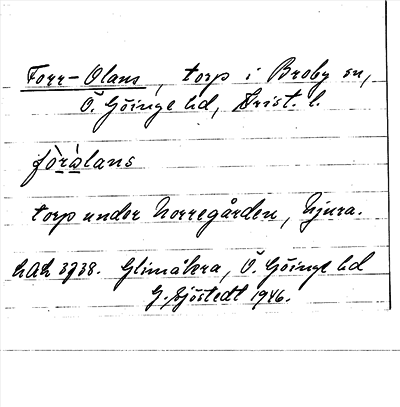 Forr-Olans, torp i Broby sn,
Ö. Göinge hd, Krist. l.
fòràlans
torp under Norregården, Njura.
LAL 3738. Glimåkra, Ö. Göinge hd
G. Sjöstedt 1946.